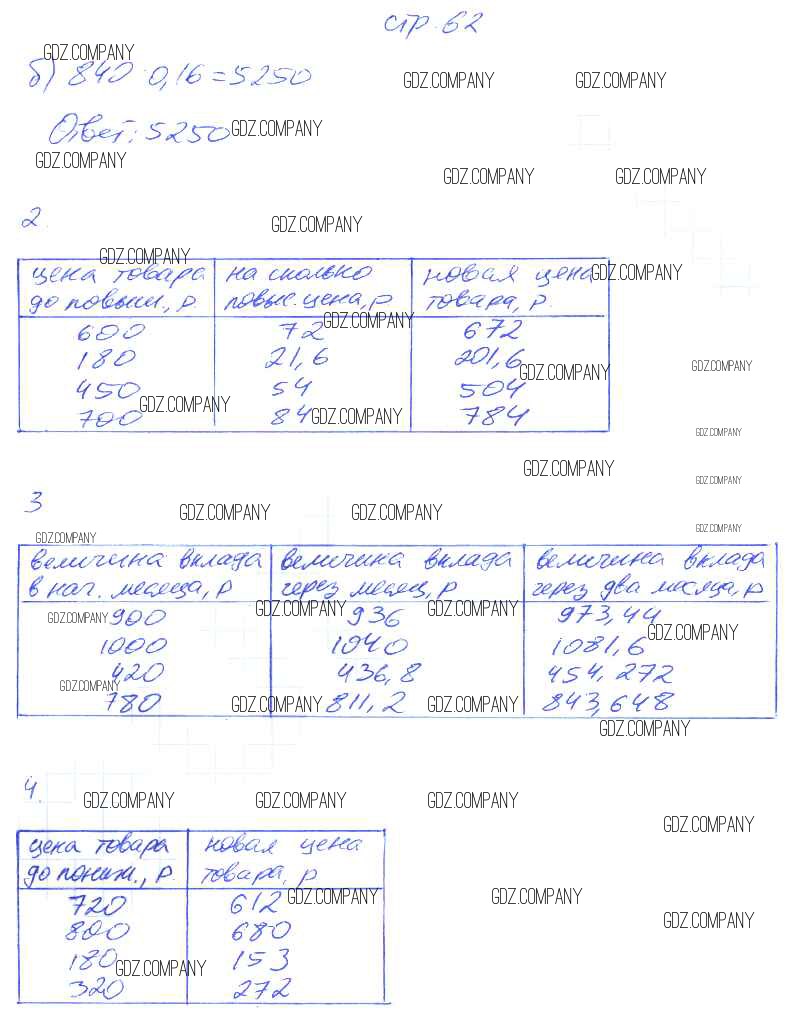 стр. 62
GDZ.COMPANY
б) 840 : 0,16 = 5250
GDZ.COMPANY GDZ.COMPANY
Ответ: 5250
GDZ.COMPANY
GDZ.COMPANY
GDZ.COMPANY GDZ.COMPANY
2.
GDZ.COMPANY
GDZ.COMPANY
цена товара на сколько новая цена
GDZ.COMPANY
до повыш., р. повыс. цена, р товара, р.
GDZ.COMPANY
600 72 672
180 21,6 201,6
GDZ.COMPANY GDZ.COMPANY
450 54 504
GDZ.COMPANY GDZ.COMPANY
700 84 784
GDZ.COMPANY
GDZ.COMPANY GDZ.COMPANY
3
GDZ.COMPANY GDZ.COMPANY
GDZ.COMPANY GDZ.COMPANY
величина вклада величина вклада величина вклада
в нач. месяца, р через месяц, р через два месяца, р
GDZ.COMPANY GDZ.COMPANY GDZ.COMPANY
900 936 973,44
GDZ.COMPANY
1000 1040 1081,6
420 436,8 454,272
GDZ.COMPANY
780 811,2 843,648
GDZ.COMPANY GDZ.COMPANY
GDZ.COMPANY
4.
GDZ.COMPANY GDZ.COMPANY GDZ.COMPANY
GDZ.COMPANY
цена товара новая цена
до пониж., р. товара, р
720 612
GDZ.COMPANY GDZ.COMPANY
800 680
GDZ.COMPANY
180 153
GDZ.COMPANY
320 272